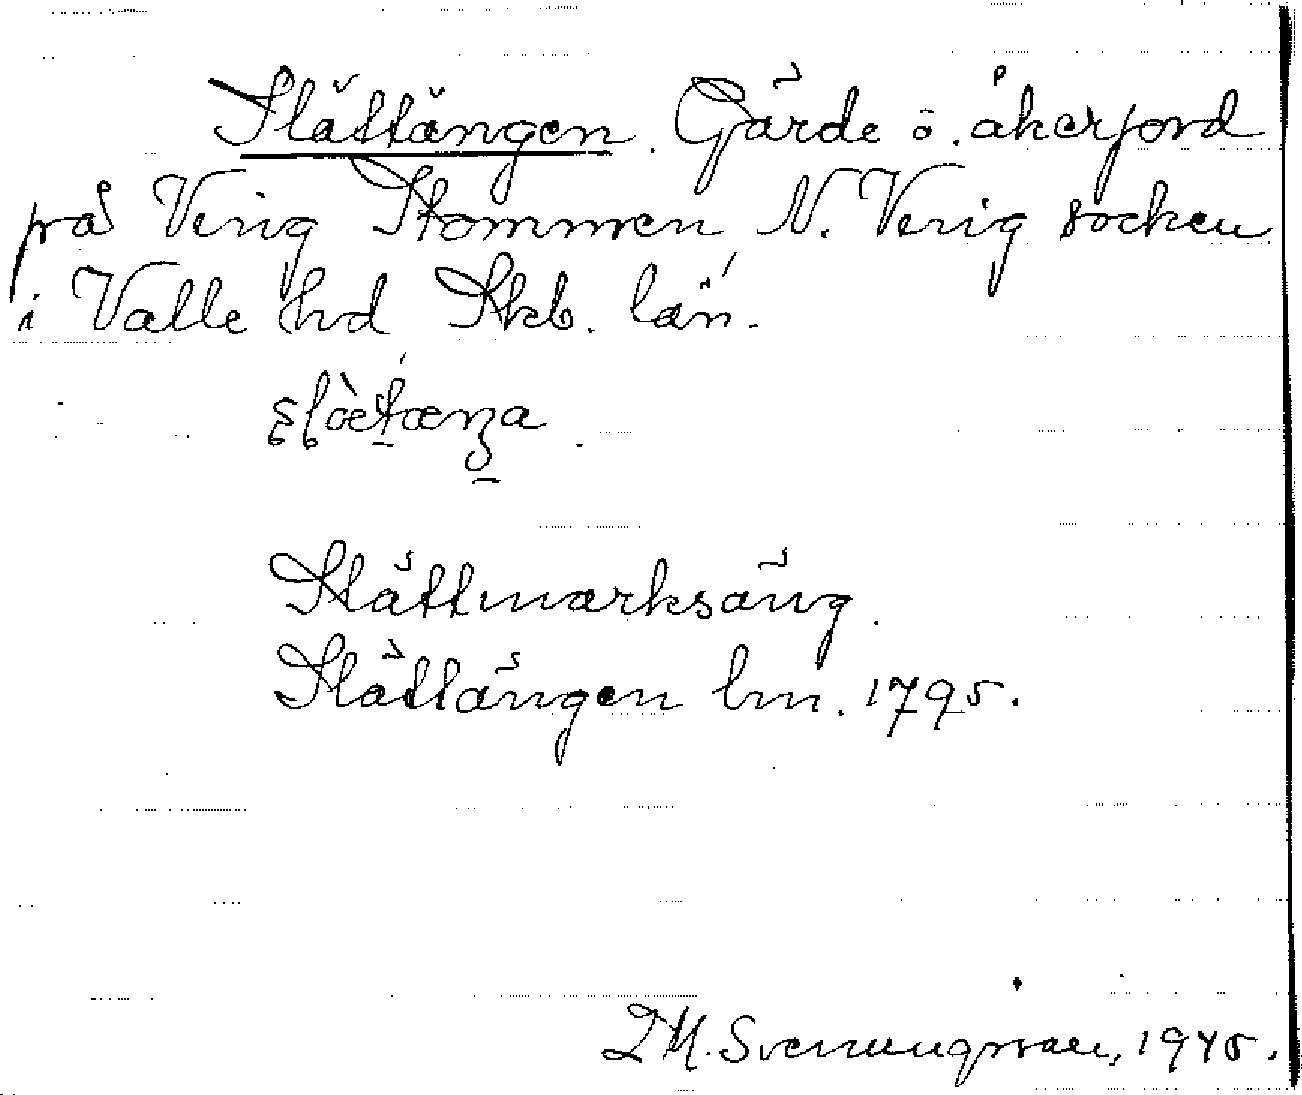 Slättängen. Gärde o. åkerjord
på Ving Stommen N. Ving socken
i Valle hd Skb. län.
Slättmarksäng.
Slättängen lm. 1795.
D.M. Svenungsson, 1945.